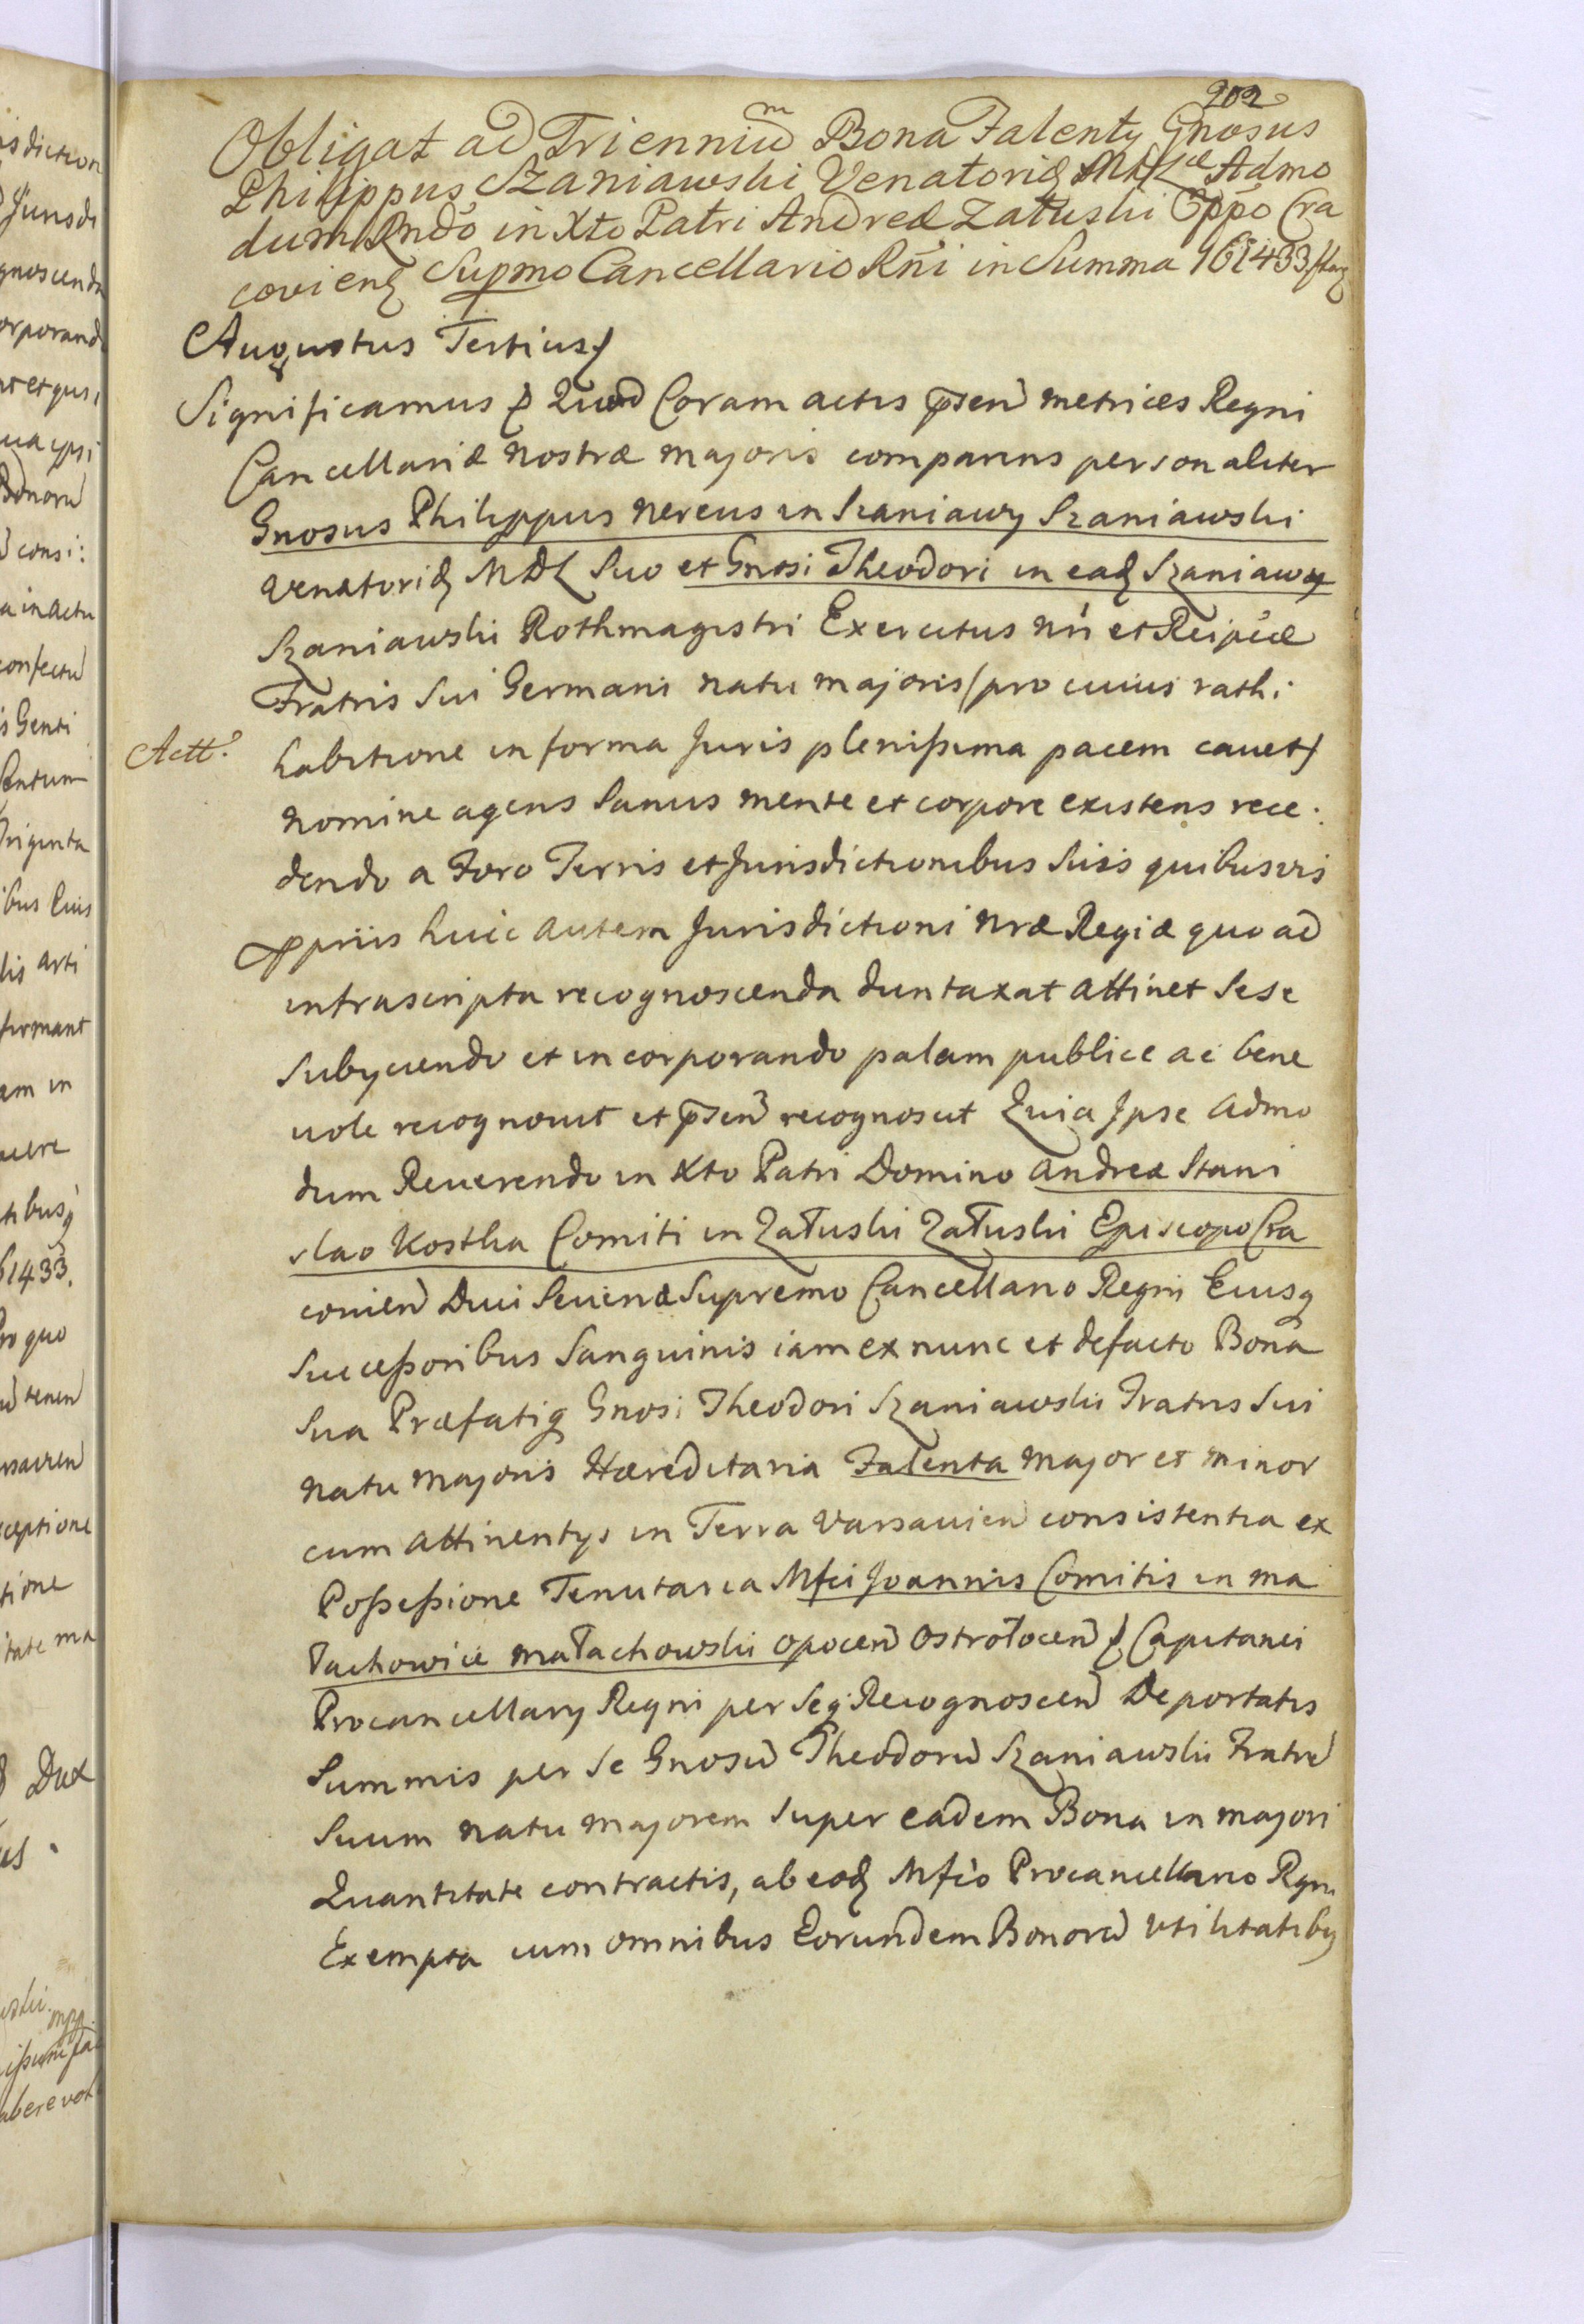 202
Obligat ad Trienniu Bona Falenty Gnosus
Philippus Szaniawski Venatorid MDL Admo
dum Rndo in Xto Patri Andreæ Załuski Eppo Cra
covien Supmo Cancellario Rni in Summa 161433
Augustus Tertius
Significamus Quod Coram actis psen metrices Regni
Cancellariæ nostræ majoris comparens personaliter
Gnosus Philippus Nereus in Szaniawy Szaniawski
Venatorid MDL Suo et Gnosi Theodori in ead Szaniawy
Szaniawski Rothmagistri Exercitus nri et Reipcæ
Fratris Sui Germani natu majoris (pro cuius rathi
Actt.
habitione in forma Juris plenissima pacem cauet)
nomine agens Sanus mente et corpore existens rece.
dendo a Foro Terris et Jurisdictionibus Suis quibusvis
ppriis huic autem Jurisdictioni nræ Regiæ quo ad
infrascripta recognoscenda duntaxat attinet Sese
Subyciendo et incorporando palam publice ac bene
uole recognouit et psen recognoscit Quia Ipse admo
dum Reuerendo in Xto Patri Domino Andreæ Stani
slao Kostka Comiti in Załuski Załuski Episcopo Cra
couien Duci Seueriæ Supremo Cancellario Regni Eiusq
Successoribus Sanguinis iam ex nunc et defacto Bona
Sua Præfatiq Gnosi Theodori Szaniawski Fratris Sui
natu majoris Hæreditaria Falenta major et minor
cum attinentys in Terra Varsauien consistentia ex
Possessione Tenutaria Mfci Joannis Comitis in ma
łachowice małachowski opocen Ostrołocen Capitanei
Procancellary Regni per Seq Recognoscen Deportatis
Summis per Se Gnosu Theodoru Szaniawski Fratre
Suum natu majorem Super eadem Bona in majori
Quantitate contractis, ab eod Mfco Procancellario Rgni
Exempta cum omnibus Eorundem Bonoru Utilitatiby